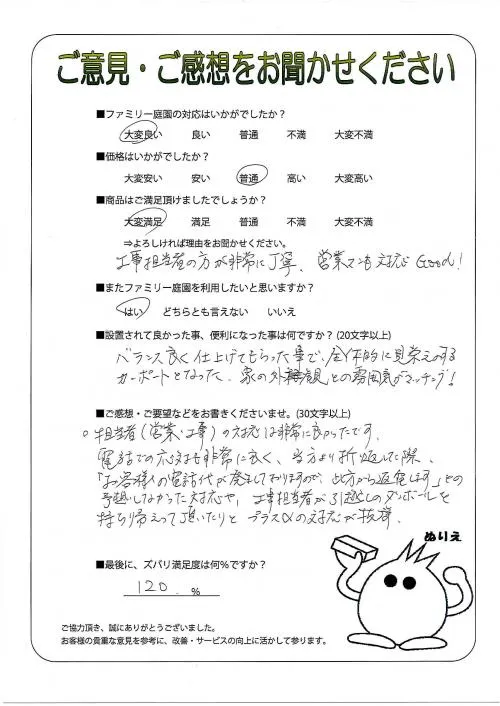 ご意見・ご感想をお聞かせください
■ファミリー庭園の対応はいかがでしたか？
大変良い 良い 普通 不満 大変不満
■価格はいかがでしたか？
大変安い 安い 普通 高い 大変高い
■商品はご満足頂けましたでしょうか？
大変満足 満足 普通 不満 大変不満
⇒よろしければ理由をお聞かせください。
工事担当者の方が非常に丁寧、営業マンも対応Good！
■またファミリー庭園を利用したいと思いますか？
はい どちらとも言えない いいえ
■設置されて良かった事、便利になった事は何ですか？(20文字以上)
バランス良く仕上げてもらった事で、全体的に見栄えのする
カーポートとなった、家の外観との雰囲気がマッチング！
■ご感想・ご要望などをお書きくださいませ。(30文字以上)
○担当者(営業・工事)の対応は非常に良かったです。
電話での応対も非常に良く、当方より折返した際、
「お客様の電話代が発生しておりますので、此方から返信します」との
予想しなかった対応や、工事担当者が引越しのダンボールを
持ち帰えって頂いたりとプラスαの対応が抜群。
■最後に、ズバリ満足度は何%ですか？
120 %
ぬりえ
ご協力頂き、誠にありがとうございました。
お客様の貴重な意見を参考に、改善・サービスの向上に活かして参ります。